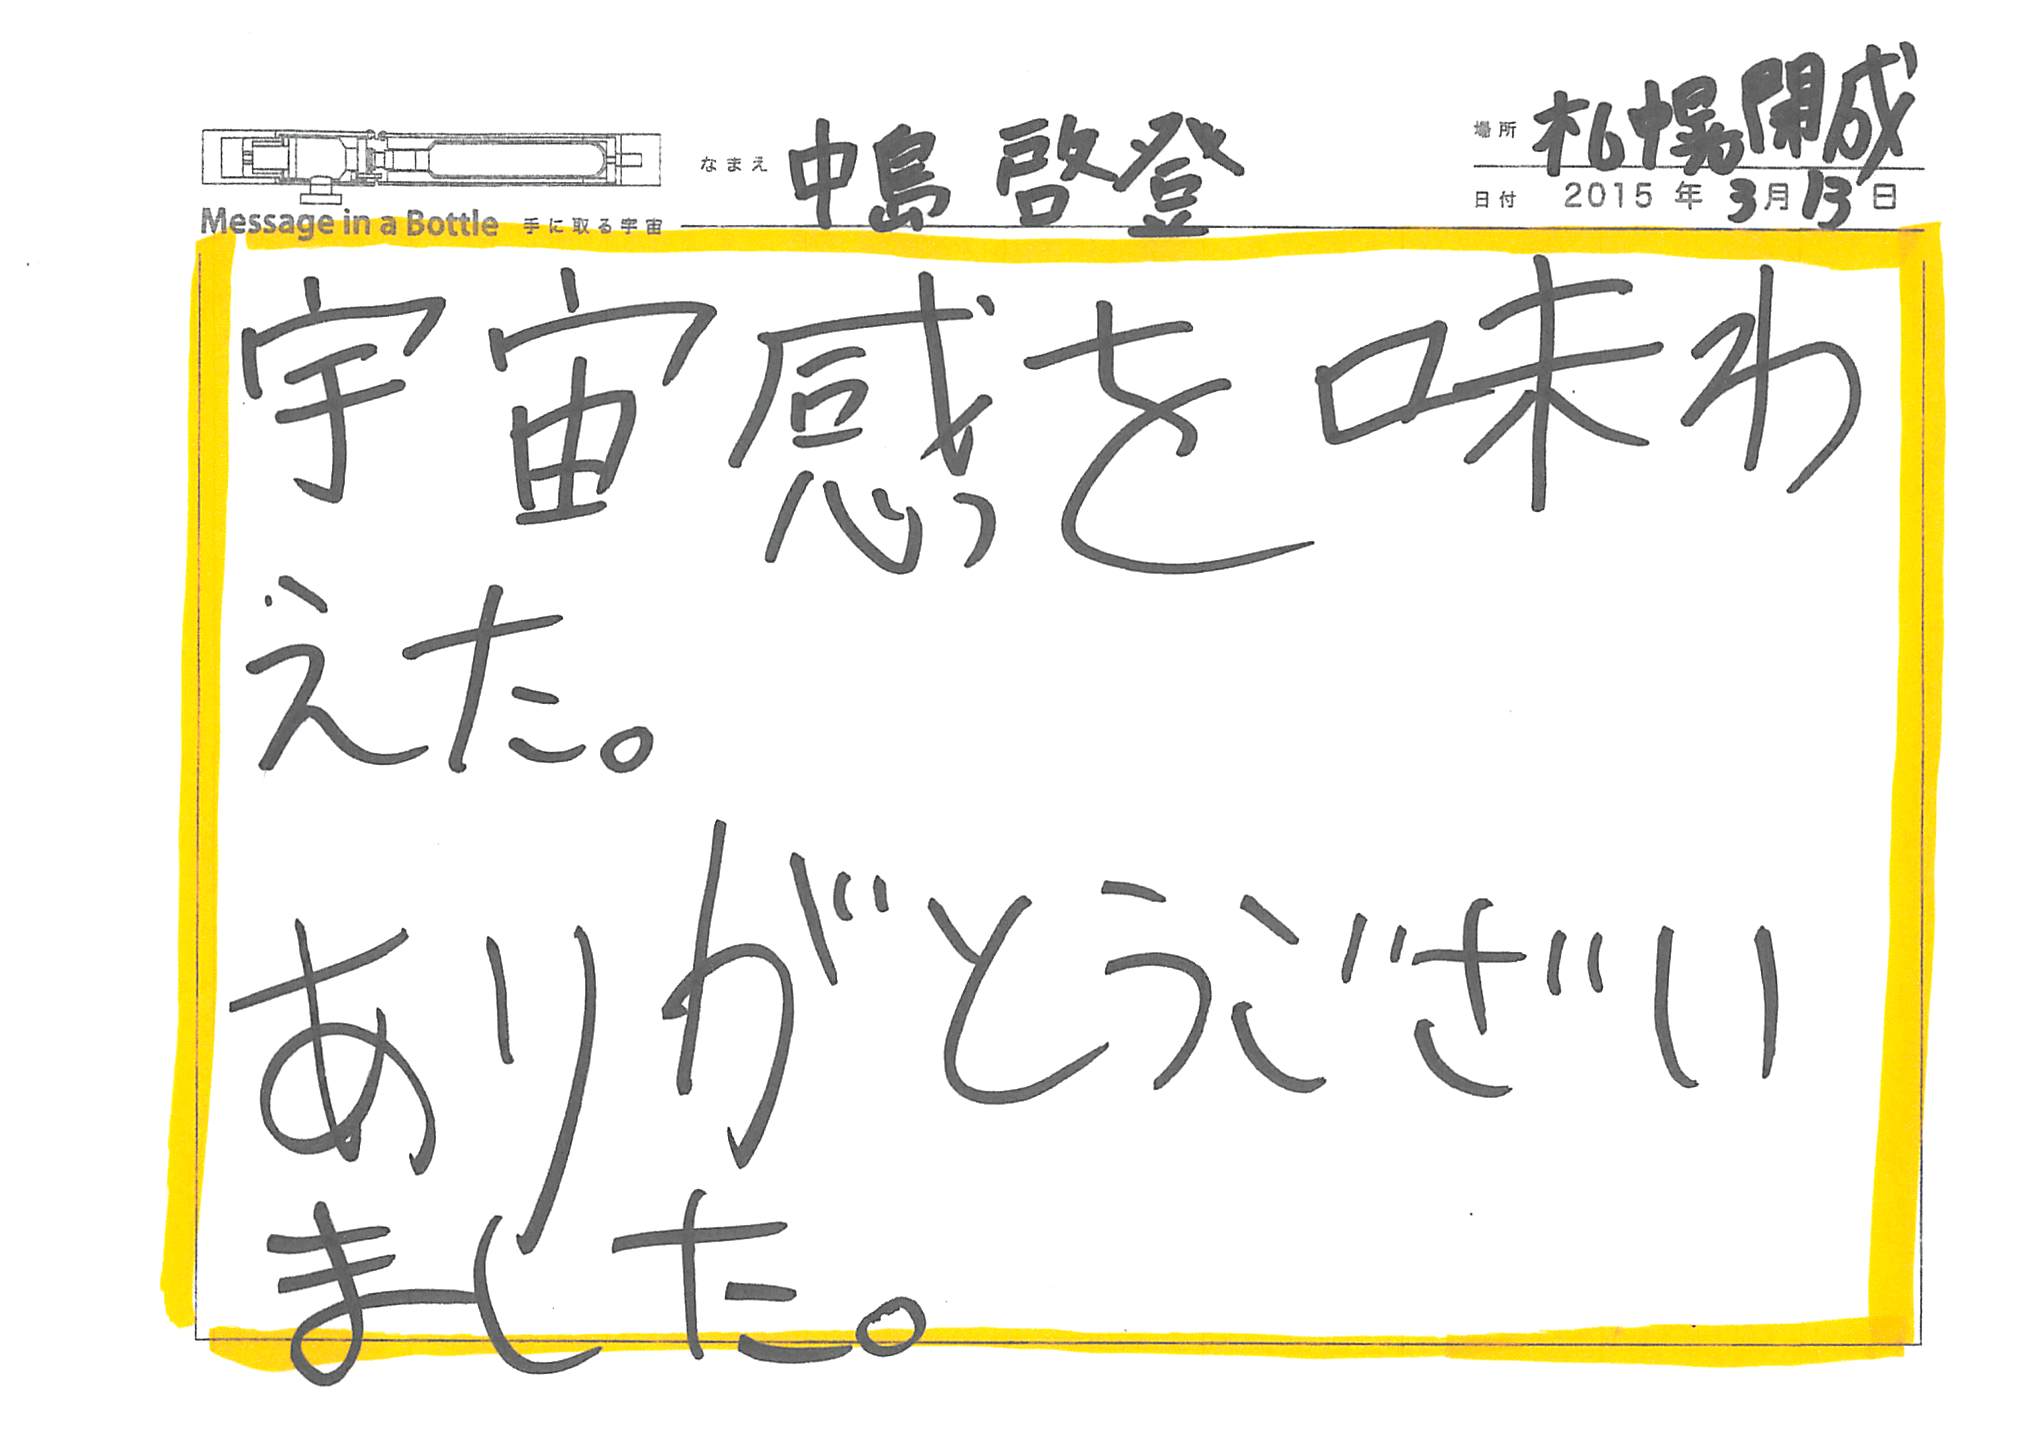 なまえ 中島 啓登
場所 札幌開成
日付 2015年 3月 13日
Message in a Bottle 手に取る宇宙
宇宙感を味わ
えた。
ありがとうござい
ました。